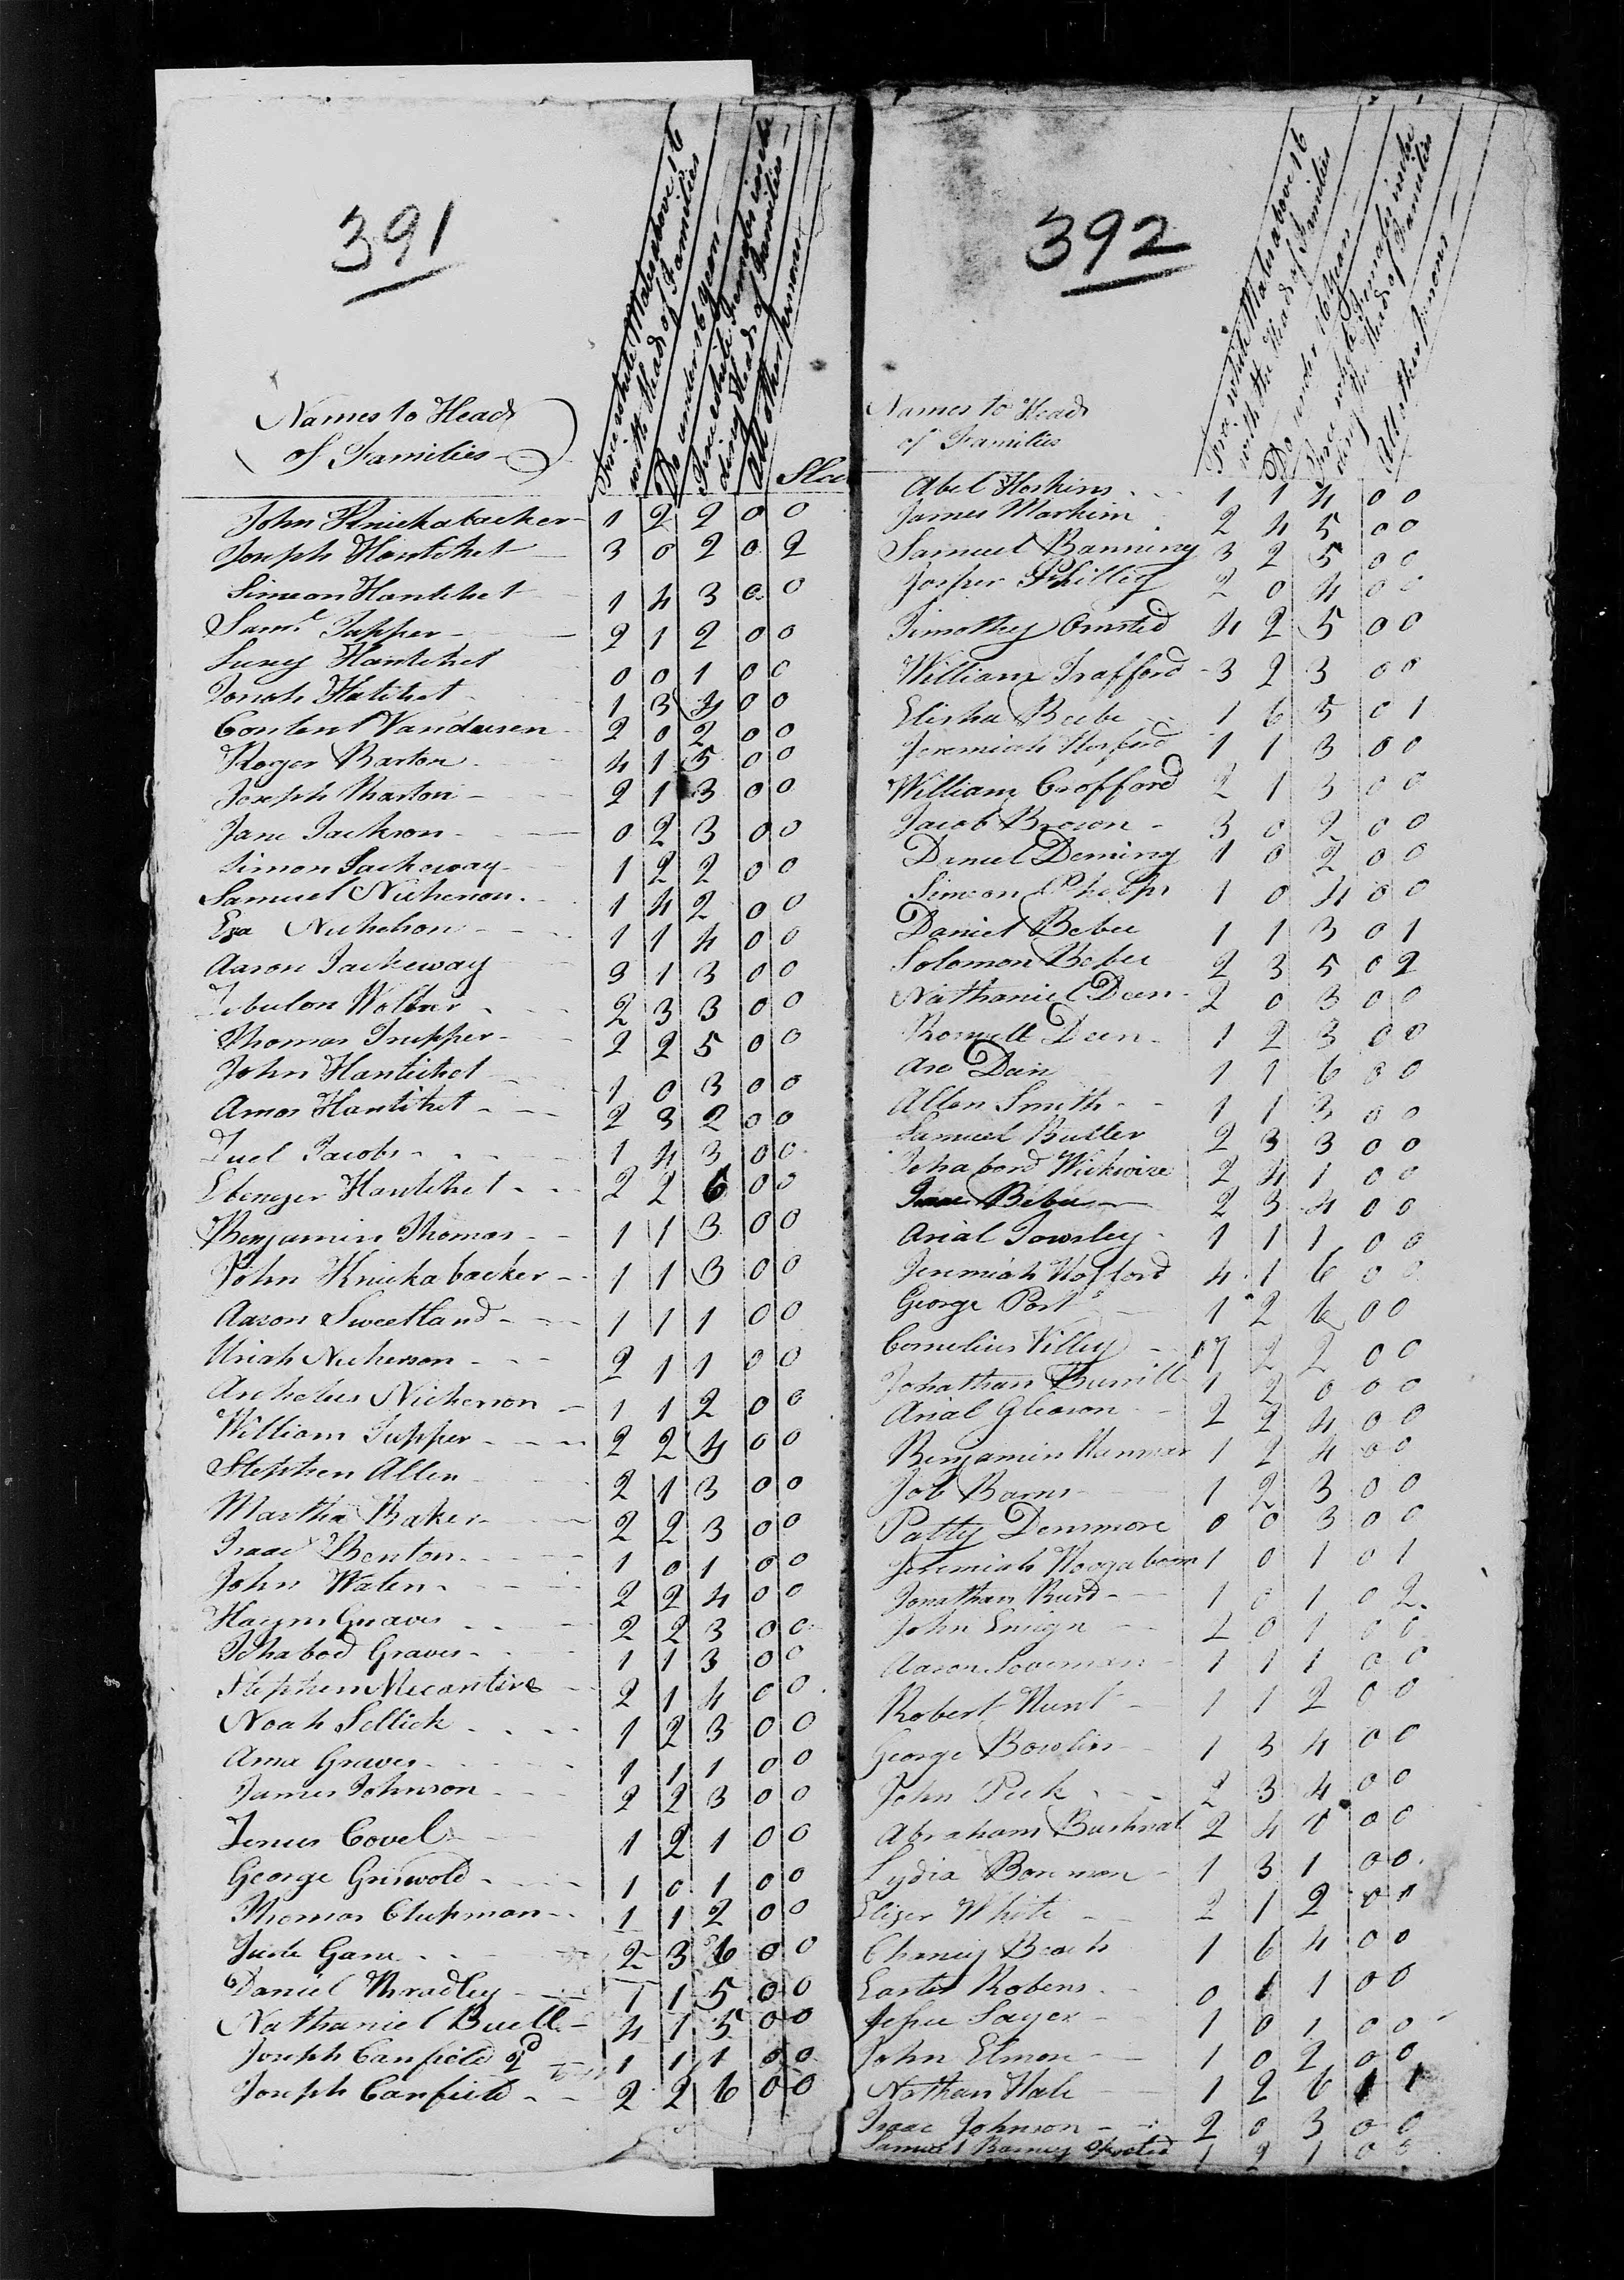 391
Free white Males above 16
with the Heads of Families
Do under 16 years
Free white Females inclu
ding Heads of Families
All other persons
Slav
Names to Heads
of Families
John Knickabacker 0 2 2 0 0
Joseph Hantchet 3 0 2 0 2
Simeon Hantchet 1 4 3 0 0
Saml Tupper 2 1 2 0 0
Hantchet 0 0 1 0 0
Jonah Hatchet 1 3 4 0 0
Content Vandusen 2 0 2 0 0
Roger Barton 4 1 5 0 0
Joseph Barton 2 1 3 0 0
Jane Jackson 0 2 3 0 0
Simon Jackaway 1 2 2 0 0
Samuel Nickerson 1 4 2 0 0
Eza Nickelson 1 1 4 0 0
Aaron Jackeway 3 1 3 0 0
Zebulon 2 3 3 0 0
Thomas Tupper 2 2 5 0 0
John Hantchet 1 0 3 0 0
Amos Hantchet 2 3 2 0 0
Jacobs 1 4 3 0 0
Ebenezer Hantchet 2 2 6 0 0
Benjamin Thomas 1 1 3 0 0
John Knickabacker 1 1 3 0 0
Aaron Sweetland 1 1 1 0 0
Uriah Nickerson 2 1 1 0 0
Archelus Nickerson 1 1 2 0 0
William Tupper 2 2 4 0 0
Stephen Allen 2 1 3 0 0
Martha Baker 2 2 3 0 0
Isaac Benton 1 0 1 0 0
John Waters 2 2 4 0 0
Graves 2 2 3 0 0
Ichabod Graves 1 1 3 0 0
Stephen Mecantire 2 1 4 0 0
Noah Sellick 1 2 3 0 0
Ama Graves 1 1 1 0 0
James Johnson 2 2 3 0 0
Covel 1 2 1 0 0
George Griswold 1 0 1 0 0
Thomas Chapman 1 1 2 0 0
2 3 6 0 0
Daniel Bradley 1 1 5 0 0
Nathaniel Buell 4 1 5 0 0
Joseph Canfield 2d 1 1 1 0 0
Joseph Canfield 2 2 6 0 0
392
Free white Males above 16
with the Heads of Families
Do under 16 years
Free white Females inclu
ding the Heads of Families
All other persons
Names to Heads
of Families
Abel Hoskins 1 1 4 0 0
James Markim 2 4 5 0 0
Samuel Banning 3 2 5 0 0
Jasper Philley 2 0 4 0 0
Timothy Omsted 4 2 5 0 0
William Trafford 3 2 3 0 0
Elisha Beebe 1 6 5 0 1
Jeremiah Hosford 1 1 3 0 0
William Crofford 2 1 3 0 0
Jacob Brown 3 0 2 0 0
Daniel Deming 1 0 2 0 0
Simeon Phelps 1 0 4 0 0
Daniel Bebee 1 1 3 0 1
Solomon Bebee 2 3 5 0 2
Nathaniel Deen 2 0 3 0 0
Roswell Deen 1 2 3 0 0
Deen 1 1 6 0 0
Allen Smith 1 1 3 0 0
Samuel Butler 2 3 3 0 0
Ichabord Wickwire 2 4 1 0 0
Isaac Bebee 2 3 4 0 0
Arial Towsley 1 1 1 0 0
Jeremiah Hosford 4 1 6 0 0
George Port 1 2 6 0 0
Cornelius Filley 2 2 0 0
Jonathan Burrill 1 2 0 0 0
Arial Gleason 2 2 4 0 0
Benjamin 1 2 4 0 0
Job Barns 1 2 3 0 0
Patty Densmore 0 0 3 0 0
Jeremiah Hoogaboom 1 0 1 0 1
Jonathan 1 0 1 0 2
John Ensign 2 0 1 0 0
Aaron Loveman 1 1 1 0 0
Robert Hunt 1 1 2 0 0
George Bowlin 1 3 4 0 0
John Peck 2 3 4 0 0
Abraham Bushnal 2 4 1 0 0
Lydia Bowman 1 3 1 0 0
Elizer White 2 1 2 0 0
Chancy Beach 1 6 4 0 0
Easter Robens 0 1 1 0 0
Sager 1 0 1 0 0
John Elmore 1 0 2 0 0
Nathan Hale 1 2 6 1 1
Isaac Johnson 2 0 3 0 0
Samuel Barney 1 2 1 0 0